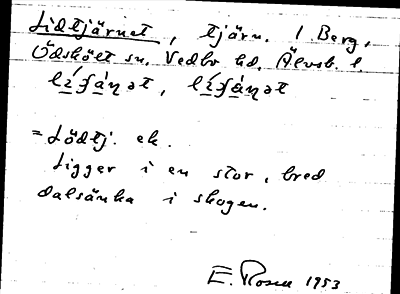 Lidtjärnet, tjärn. l Berg,
Ödskölt sn. Vedbo hd. Älvsb. l.
= Lödtj. ek.
Ligger i en stor, bred
dalsänka i skogen.
E. Rosen 1953